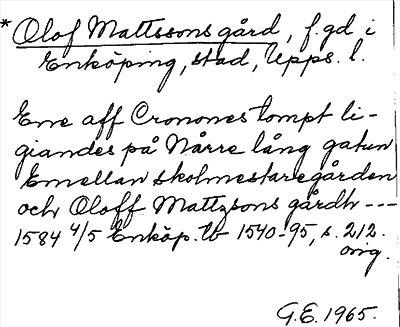 * Olof Mattssons gård, f.gd i
Enköping, stad, Upps. l.
Ene aff Cronones tompt li-
giandes på Nårre lång gatun
Emellan skolmestaregården
och Oloff Mattzsons gårdh ---
1584 4/5 Enköp. tb 1540-95, s. 212.
orig.
G.E. 1965.